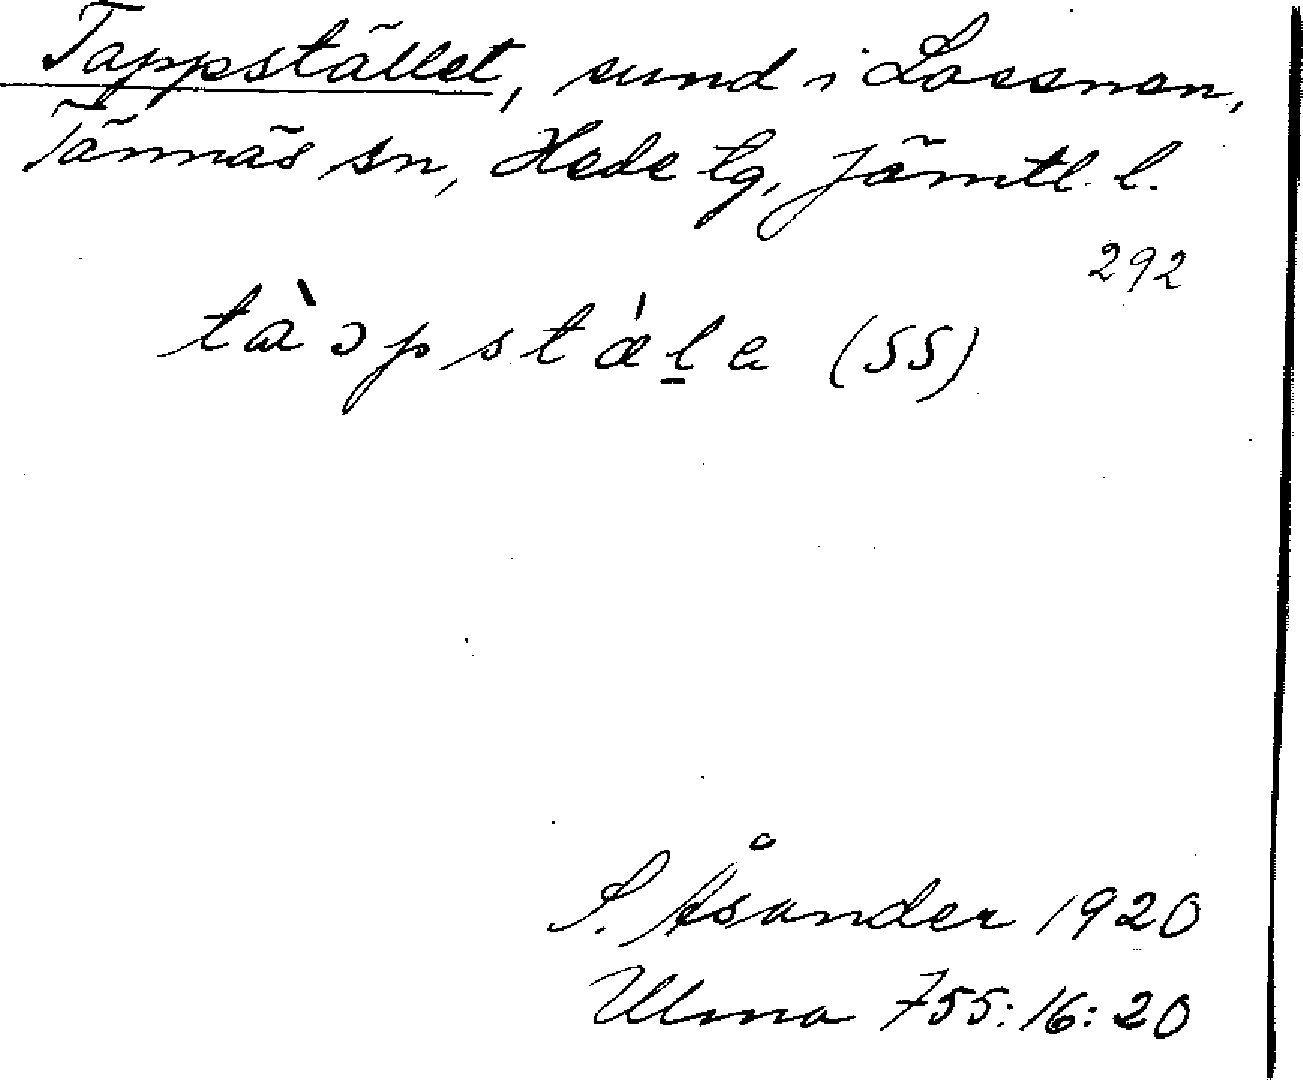 Tappstället, sund i Lossnen,
Tännäs sn, Hede tg, Jämtl. l.
292
tàɔpstæ̍l̠e (SS)
S. Åsander 1920
Ulma 755:16:20